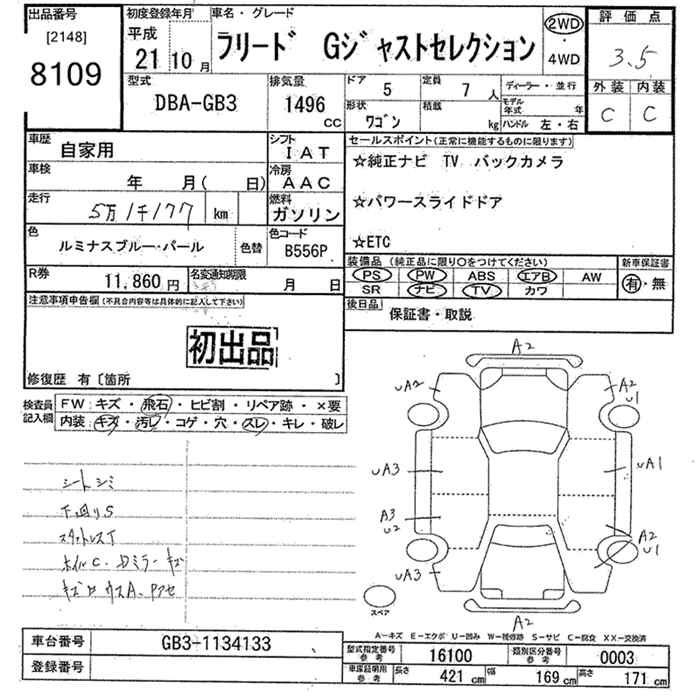 出品番号
[2148]
8109
初度登録年月
平成
21 10 月
車名・グレード
フリード Gジャストセレクション
2WD
・
4WD
評価点
3.5
外装 内装
C C
型式
DBA-GB3
排気量
1496
cc
ドア
5
定員
7 人
ディーラー・並行
形状
ワゴン
積載
kg
モデル年式 年
ハンドル 左・右
車歴
自家用
シフト
IAT
車検
年 月( 日)
冷房
AAC
走行
5万1千177 km
燃料
ガソリン
色
ルミナスブルー・パール
色替
色コード
B556P
R券
11,860 円
名変通知期限
月 日
セールスポイント(正常に機能するものに限ります)
☆純正ナビ TV バックカメラ
☆パワースライドドア
☆ETC
装備品 (純正品に限り○をつけてください)
新車保証書
PS PW ABS エアB AW
SR ナビ TV カワ
有・無
後日品
保証書・取説
注意事項申告欄(不具合内容等は具体的に記入して下さい)
初出品
修復歴 有〔箇所 〕
検査員
記入欄
FW:キズ・飛石・ヒビ割・リペア跡・×要
内装:キズ・汚レ・コゲ・穴・スレ・キレ・破レ
シートシミ
下回りS
スタットレスT
ホイルC・Dミラーキズ
A2
uA2
A2
u1
uA3
uA1
A3
u2
A2
u1
uA3
スペア
A2
A-キズ E-エクボ U-凹み W-補修跡 S-サビ C-腐食 XX-交換済
車台番号
GB3-1134133
登録番号
型式指定番号
参考
16100
類別区分番号
参考
0003
車庫証明用
参考
長さ
421 cm
幅
169 cm
高さ
171 cm